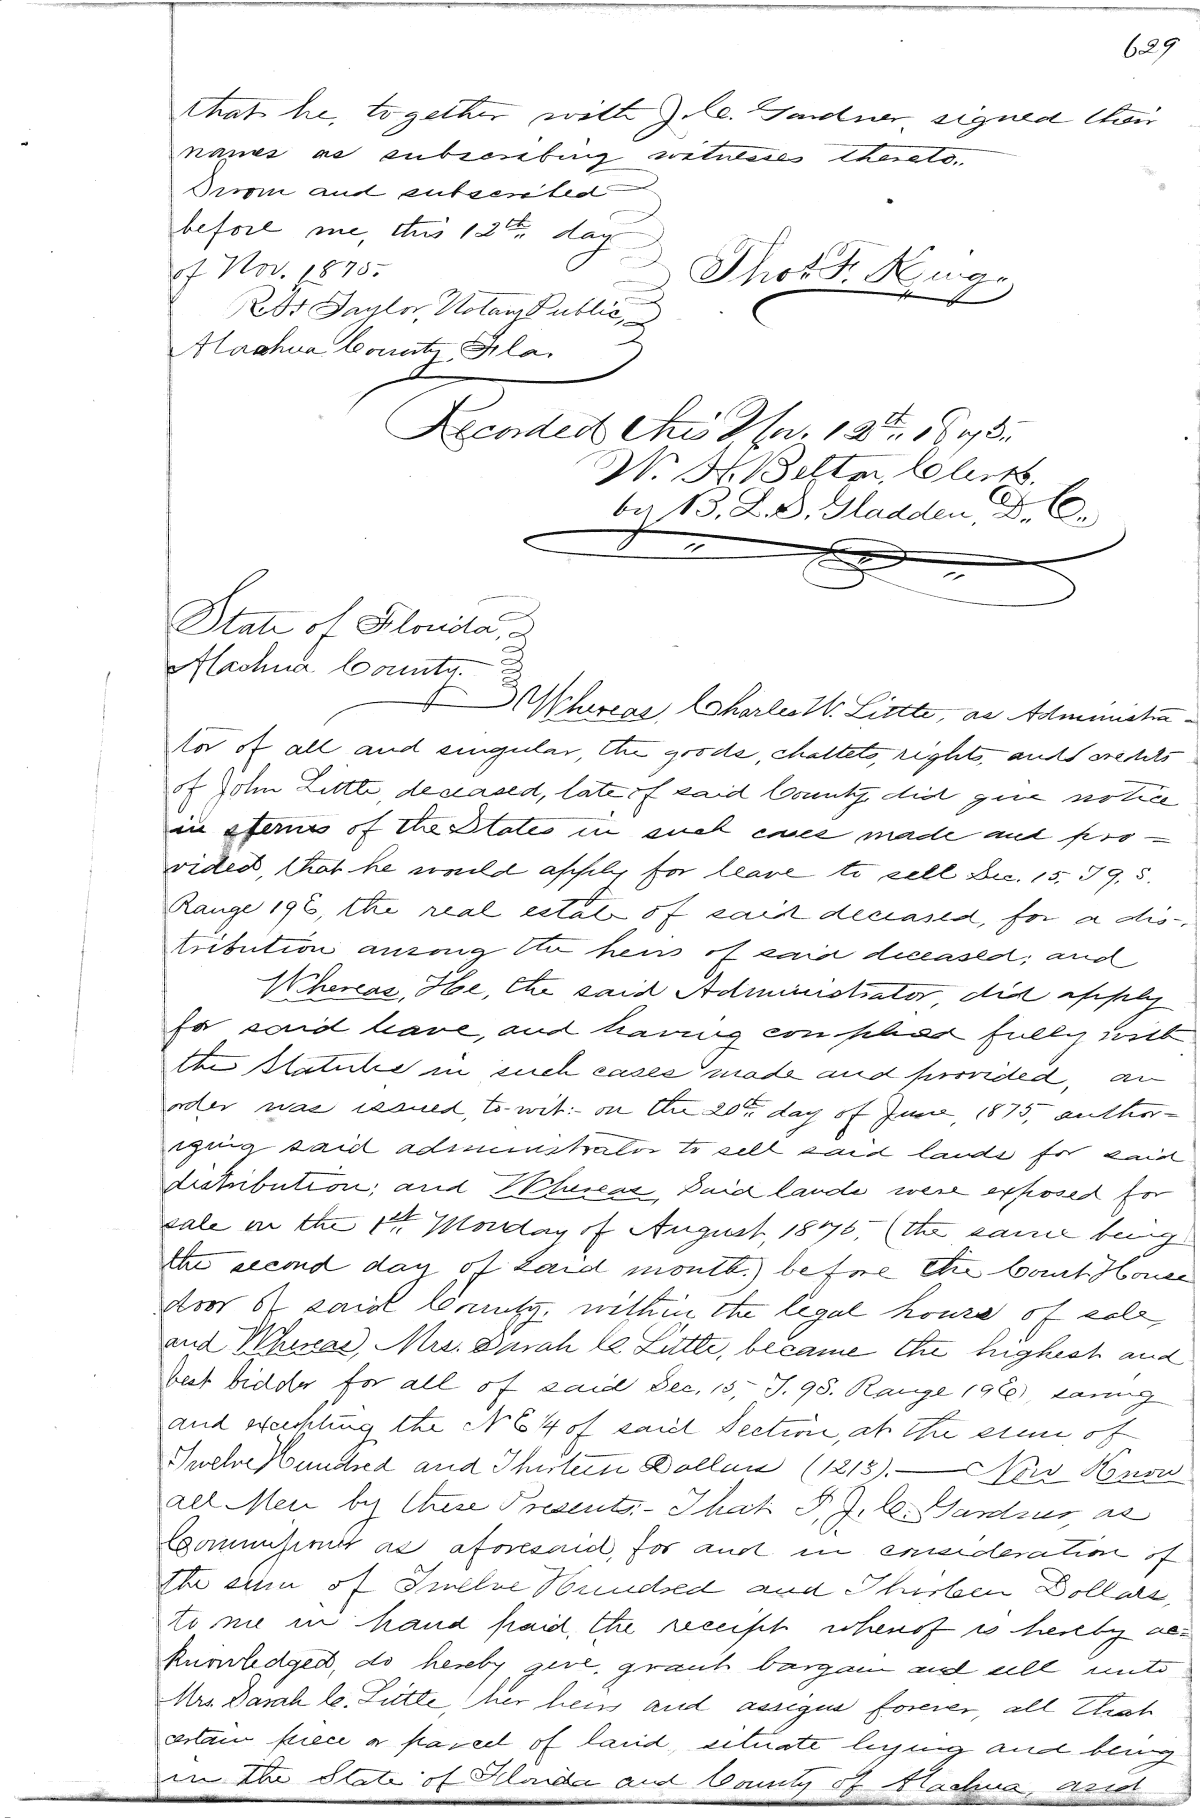 629
that he, together with J. C. Gardner, signed their
names as subscribing witnesses thereto.
Sworn and subscribed
before me, this 12th. day
of Nov. 1875.
Thos. F. King.
Taylor, Notary Public,
Alachua County, Fla.
Recorded this Nov. 12th. 1875.
W. H. Belton, Clerk.
by B. L. S. Gladden, D. C.
State of Florida,
Alachua County.
Whereas, Charles W. Little, as Administra-
tor of all and singular, the goods, chattets, rights, and credits
of John Little, deceased, late of said County, did give notice
in terms of the States in such cases made and pro-
vided, that he would apply for leave to sell Sec. 15, T 9. S.
Range 19 E, the real estate of said deceased, for a dis-
tribution among the heirs of said deceased; and
Whereas, He, the said Administrator, did apply
for said leave, and having complied fully with
the Statutes in such cases made and provided, an
order was issued, to-wit:- on the 20th. day of June, 1875, author-
izing said administrator to sell said lands for said
distribution; and Whereas, Said lands were exposed for
sale on the 1st. Monday of August, 1875, (the same being
the second day of said month.) before the Court House
door of said County, within the legal hours of sale,
and Whereas, Mrs. Sarah C. Little, became the highest and
best bidder for all of said Sec. 15, T. 9 S. Range 19 E, saving
and excepting the N E 1/4 of said Section, at the sum of
Twelve Hundred and Thirteen Dollars (1213).— Now Know
all Men by these Presents:- That I, J. C. Gardner, as
Commissioner as aforesaid, for and in consideration of
the sum of Twelve Hundred and Thirteen Dollars,
to me in hand paid, the receipt whereof is hereby ac=
knowledged, do hereby give, grant bargain and sell unto
Mrs. Sarah C. Little, her heirs and assigns forever, all that
certain piece or parcel of land, situate lying and being
in the State of Florida and County of Alachua, and